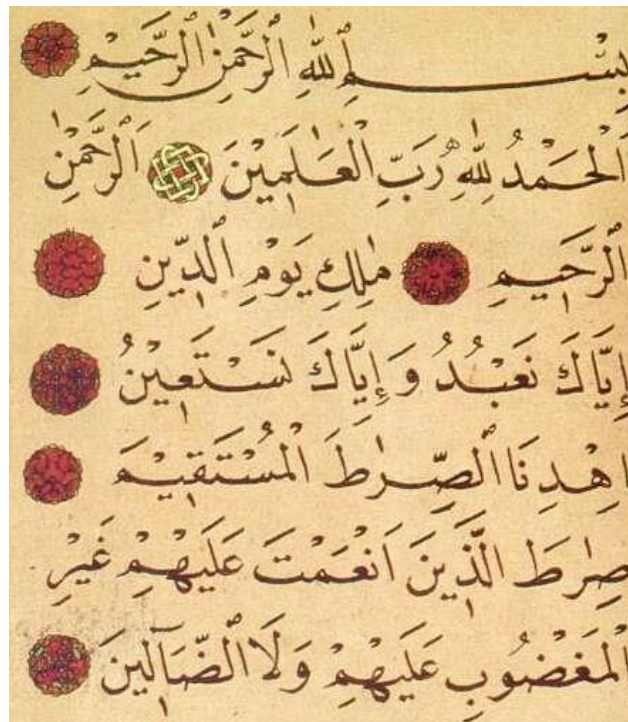 بِسْمِ ٱللّٰهِ ٱلرَّحْمٰنِ ٱلرَّحٖيمِ
اَلْحَمْدُ لِلّٰهِ رَبِّ ٱلْعَالَمٖينَ اَلرَّحْمٰنِ
ٱلرَّحٖيمِ مٰلِكِ يَوْمِ ٱلدّٖينِ
إِيَّاكَ نَعْبُدُ وَإِيَّاكَ نَسْتَعٖينُ
اِهْدِنَا ٱلصِّرٰطَ ٱلْمُسْتَقٖيمَ
صِرٰطَ ٱلَّذٖينَ اَنْعَمْتَ عَلَيْهِمْ غَيْرِ
ٱلْمَغْضُوبِ عَلَيْهِمْ وَلَا ٱلضَّآلّٖينَ